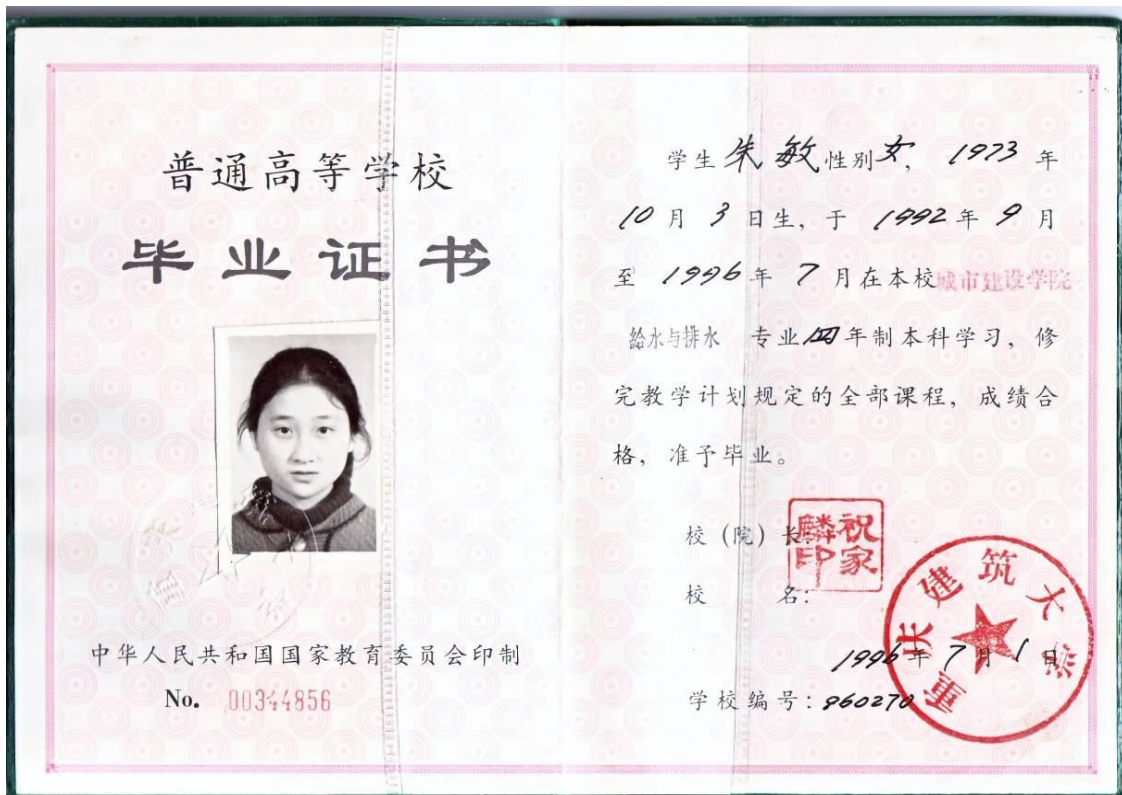 普通高等学校
毕业证书
中华人民共和国国家教育委员会印制
No. 00344856
学生朱敏性别女，1973年
10月3日生，于1992年9月
至1996年7月在本校城市建设学院
给水与排水 专业四年制本科学习，修
完教学计划规定的全部课程，成绩合
格，准予毕业。
校（院）长：
祝家麟印
校 名：
重庆建筑大学
1996年7月1日
学校编号：960270